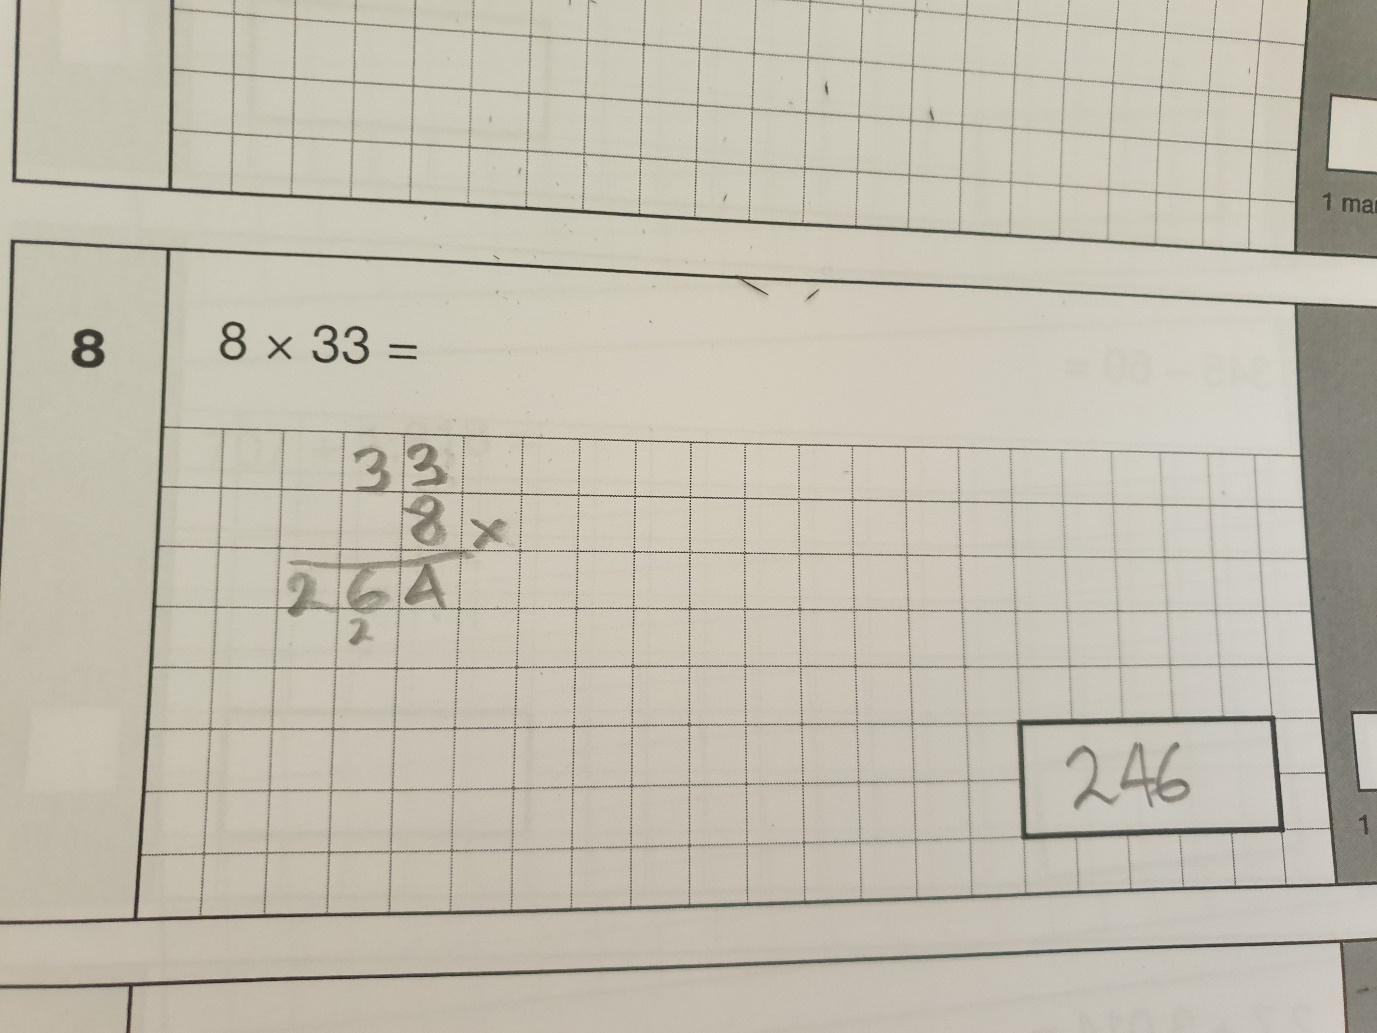 1 mar
8
8 × 33 =
33
8 ×
264
2
246
1